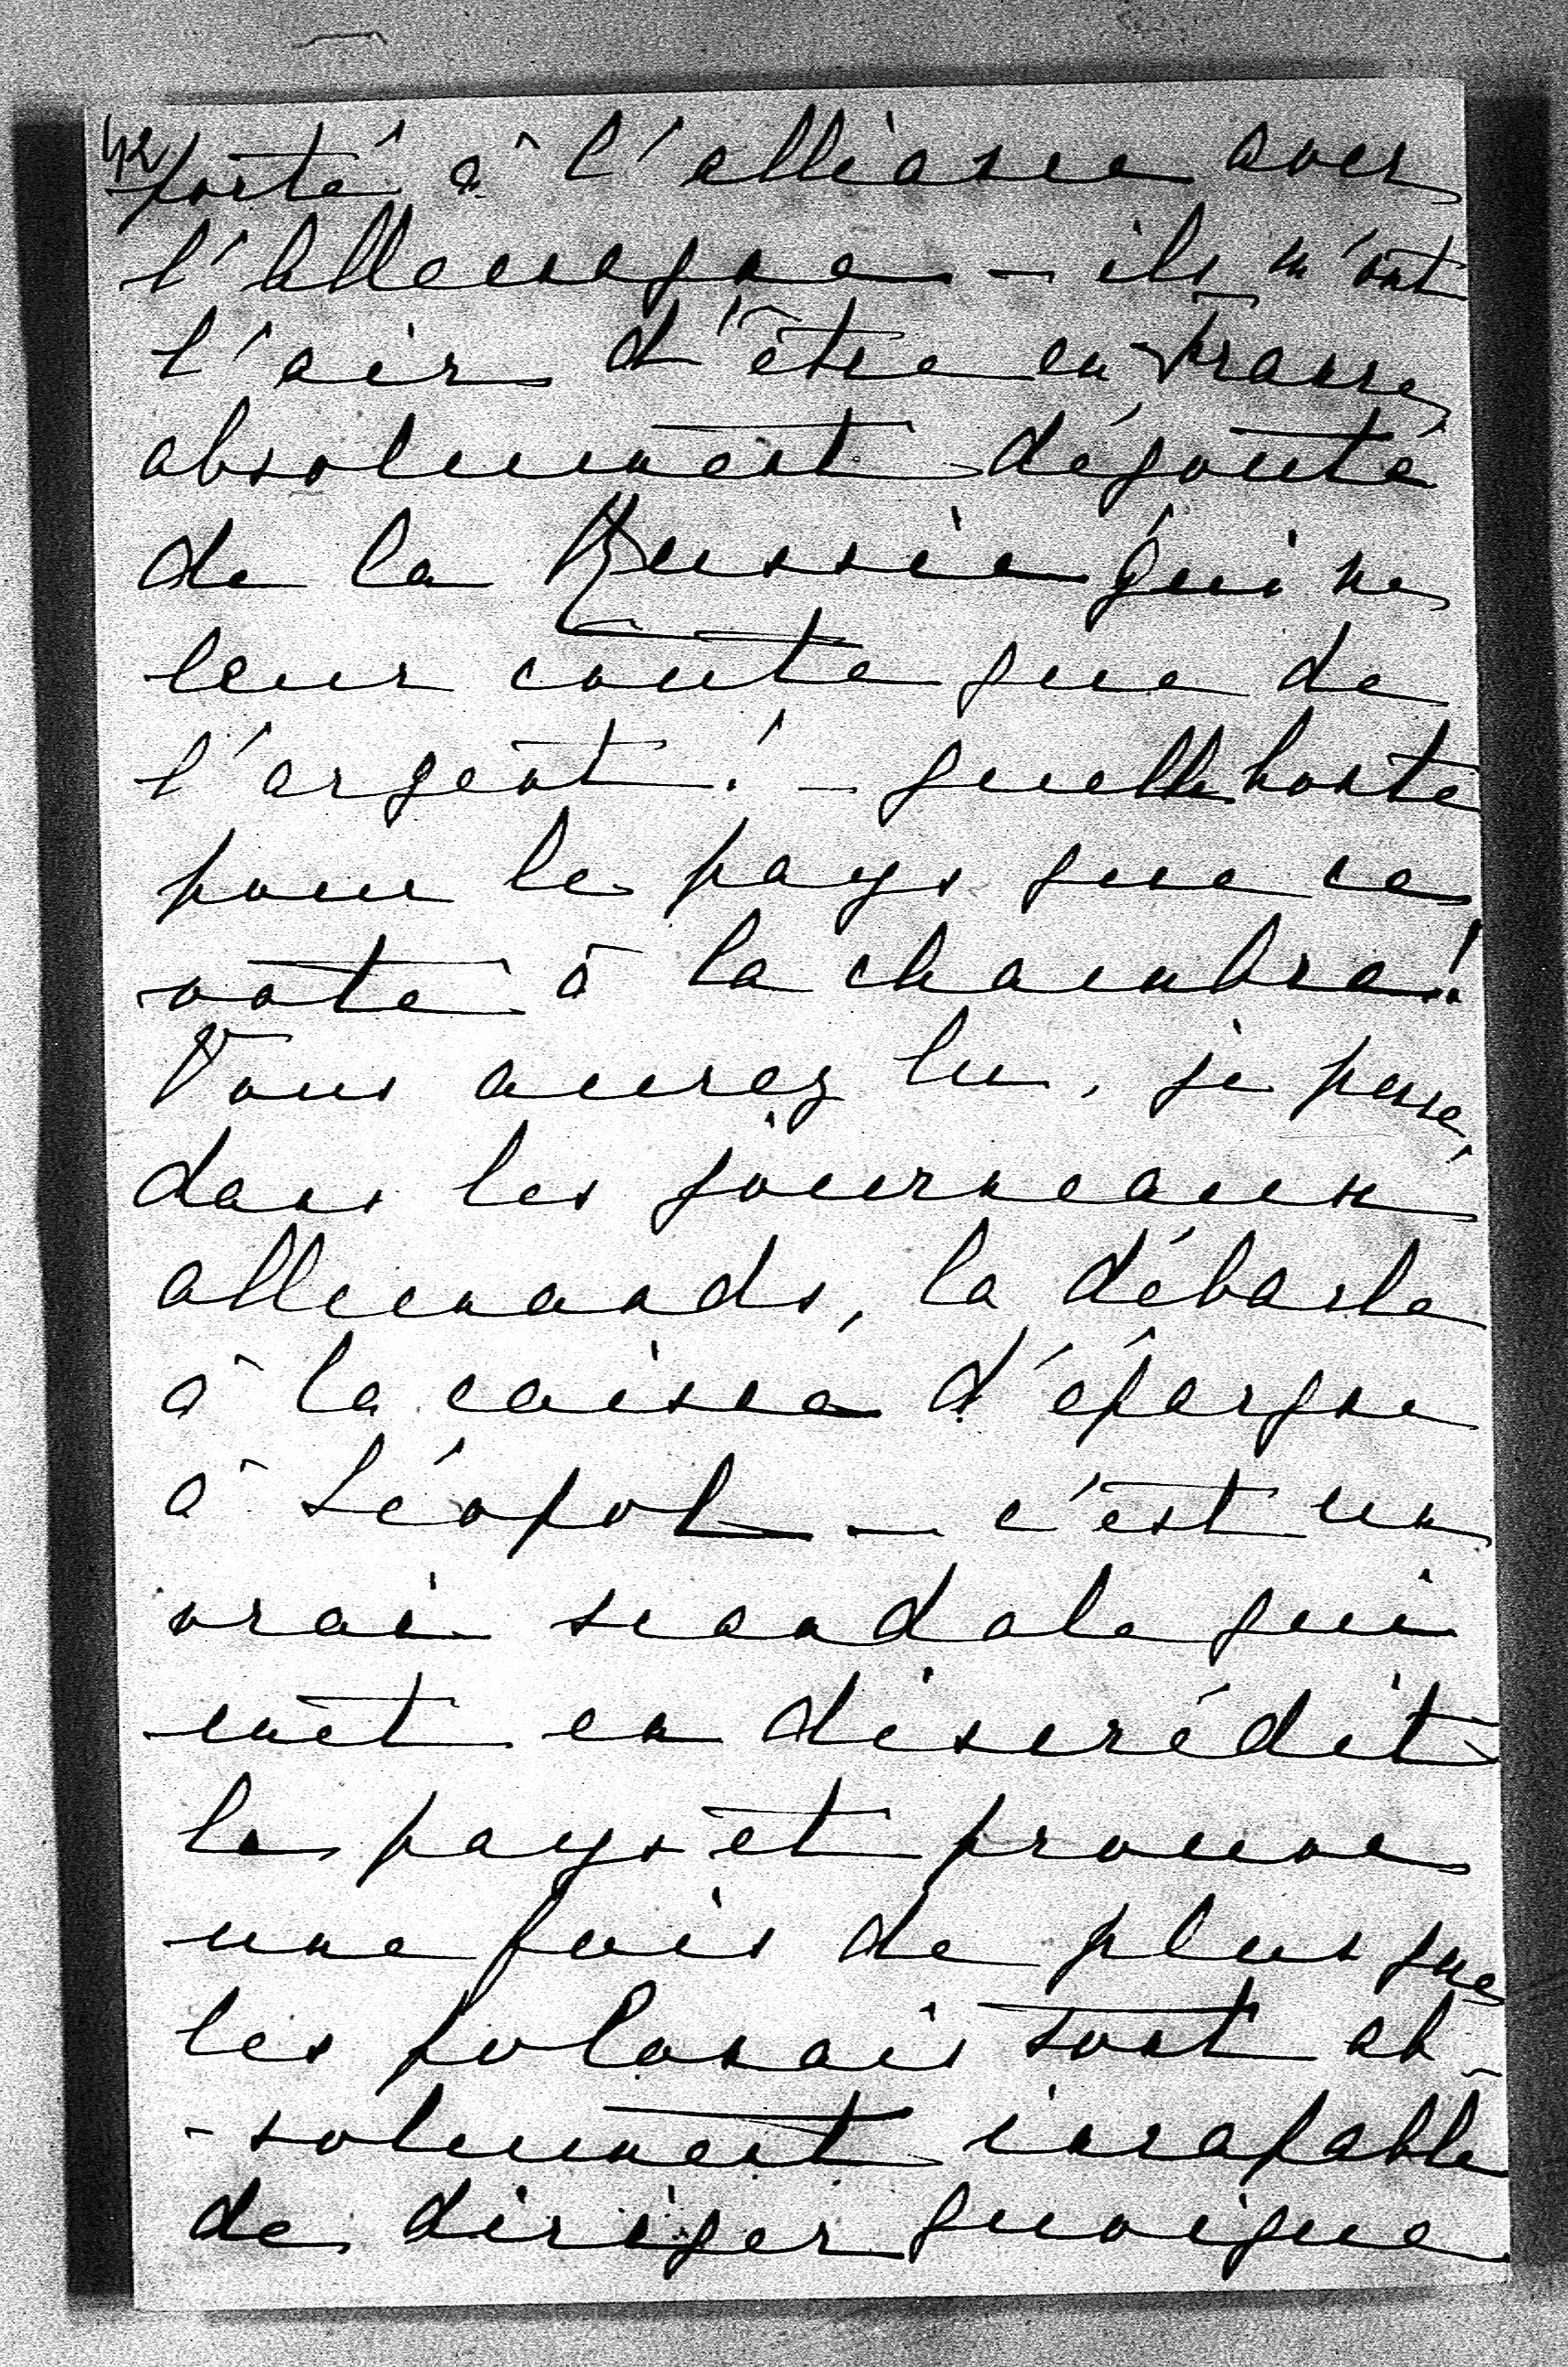 42
porté à l'alliance avec
l'Allemagne — ils m'ont
l'air d'être en France,
absolument dégouté
de la Russie qui ne
leur coute que de
l'argent ! — quelle honte
pour le pays que ce
vote à la chambre !
Vous aurez lu, je pense,
dans les journeaux
allemands, la débacle
à la caisse d'épargne
à Léopol — c'est un
vrai scandale qui
met en discrédit
le pays et prouve
une fois de plus que
les polonais sont ab-
-solument incapable
de diriger quoique